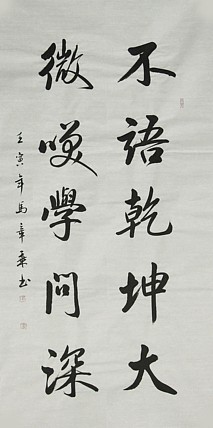 不語乾坤大
微笑學問深
壬寅年馬章乘书